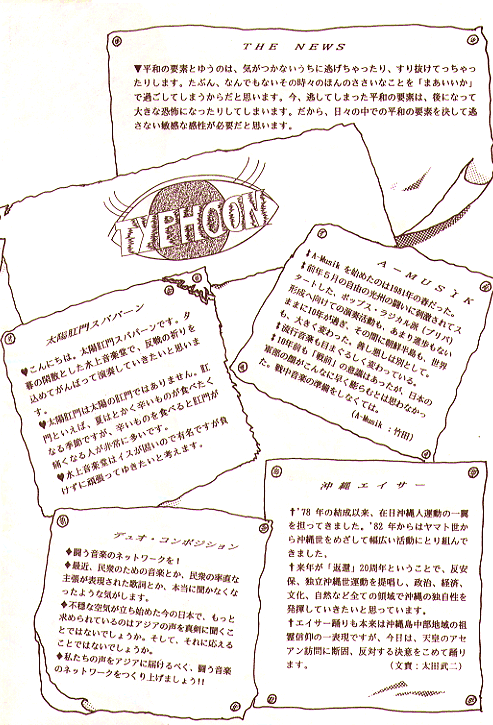 THE NEWS
♥平和の要素とゆうのは、気がつかないうちに逃げちゃったり、すり抜けてっちゃっ
たりします。たぶん、なんでもないその時々のほんのささいなことを「まあいいか」
で過ごしてしまうからだと思います。今、逃してしまった平和の要素は、後になって
大きな恐怖になったりしてしまいます。だから、日々の中での平和の要素を決して逃
さない敏感な感性が必要だと思います。
TYPHOON
A-MUSIK
♦A-Musik を始めたのは1981年の春だった。
♦前年5月の自由の光州の闘いに刺激されてス
タートした。ポップス・ラジカル派(プリバ)
形成へ向けての演奏活動も、あまり進歩もない
ままに10年が過ぎ、その間に朝鮮半島も、世界
も、大きく変わった。善し悪しは別として。
♦流行音楽も目まぐるしく変わっている。
♦10年前も「戦前」の意識はあったが、日本の
繁郎の闇がこんなに早く膨らむとは思わなかっ
た。戦中音楽の準備をしなくては。
(A-Musik :竹田)
太陽肛門スパパーン
♥こんちには、太陽肛門スパパーンです。夕
暮の閑散とした水上音楽堂で、反戦の祈りを
込めてがんばって演奏していきたいと思いま
す。
♥太陽肛門は太陽の肛門ではありません。肛
門といえば、夏はとかく辛いものが食べたく
なる季節ですが、辛いものを食べると肛門が
痛くなる人が非常に多いです。
♥水上音楽堂はイスが固いので有名ですが負
けずに頑張ってゆきたいと考えます。
沖縄エイサー
†'78 年の結成以来、在日沖縄人運動の一翼
を担ってきました。'82 年からはヤマト世か
ら沖縄世をめざして幅広い活動にとり組んで
きました。
†来年が「返還」20周年ということで、反安
保、独立沖縄世運動を提唱し、政治、経済、
文化、自然など全ての領域で沖縄の独自性を
発揮していきたいと思っています。
†エイサー踊りも本来は沖縄島中部地域の祖
霊信仰の一表現ですが、今日は、天皇のアセ
アン訪問に断固、反対する決意をこめて踊り
ます。 (文責:太田武二)
デュオ・コンポジション
◆闘う音楽のネットワークを!
◆最近、民衆のための音楽とか、民衆の率直な
主張が表現された歌詞とか、本当に聞かなくな
ったような気がします。
◆不穏な空気が立ち始めた今の日本で、もっと
求められているのはアジアの声を真剣に聞くこ
とではないでしょうか。そして、それに応える
ことではないでしょうか。
◆私たちの声をアジアに届けるべく、闘う音楽
のネットワークをつくり上げましょう!!